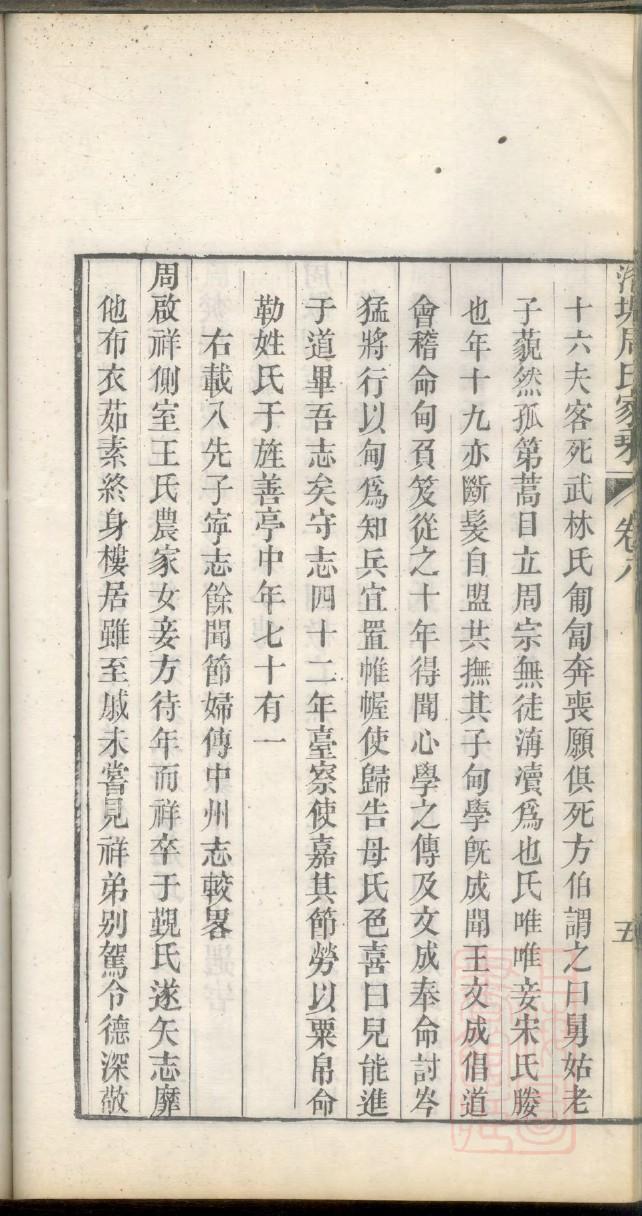 周氏家乘 卷八 五
十六夫客死武林氏匍匐奔喪願俱死方伯謂之曰舅姑老
子藐然孤第蒿目立周宗無徒溝瀆爲也氏唯唯妾宋氏媵
也年十九亦斷髮自盟共撫其子甸學旣成聞王文成倡道
會稽命甸負笈從之十年得聞心學之傳及文成奉命討岑
猛將行以甸爲知兵宜置帷幄使歸告母氏色喜曰兒能進
于道畢吾志矣守志四十二年臺察使嘉其節勞以粟帛命
勒姓氏于旌善亭中年七十有一
右載入先子寧志餘聞節婦傳中州志較畧
周啟祥側室王氏農家女妾方待年而祥卒于觐氏遂矢志靡
他布衣茹素終身樓居雖至戚未嘗見祥弟别駕令德深敬